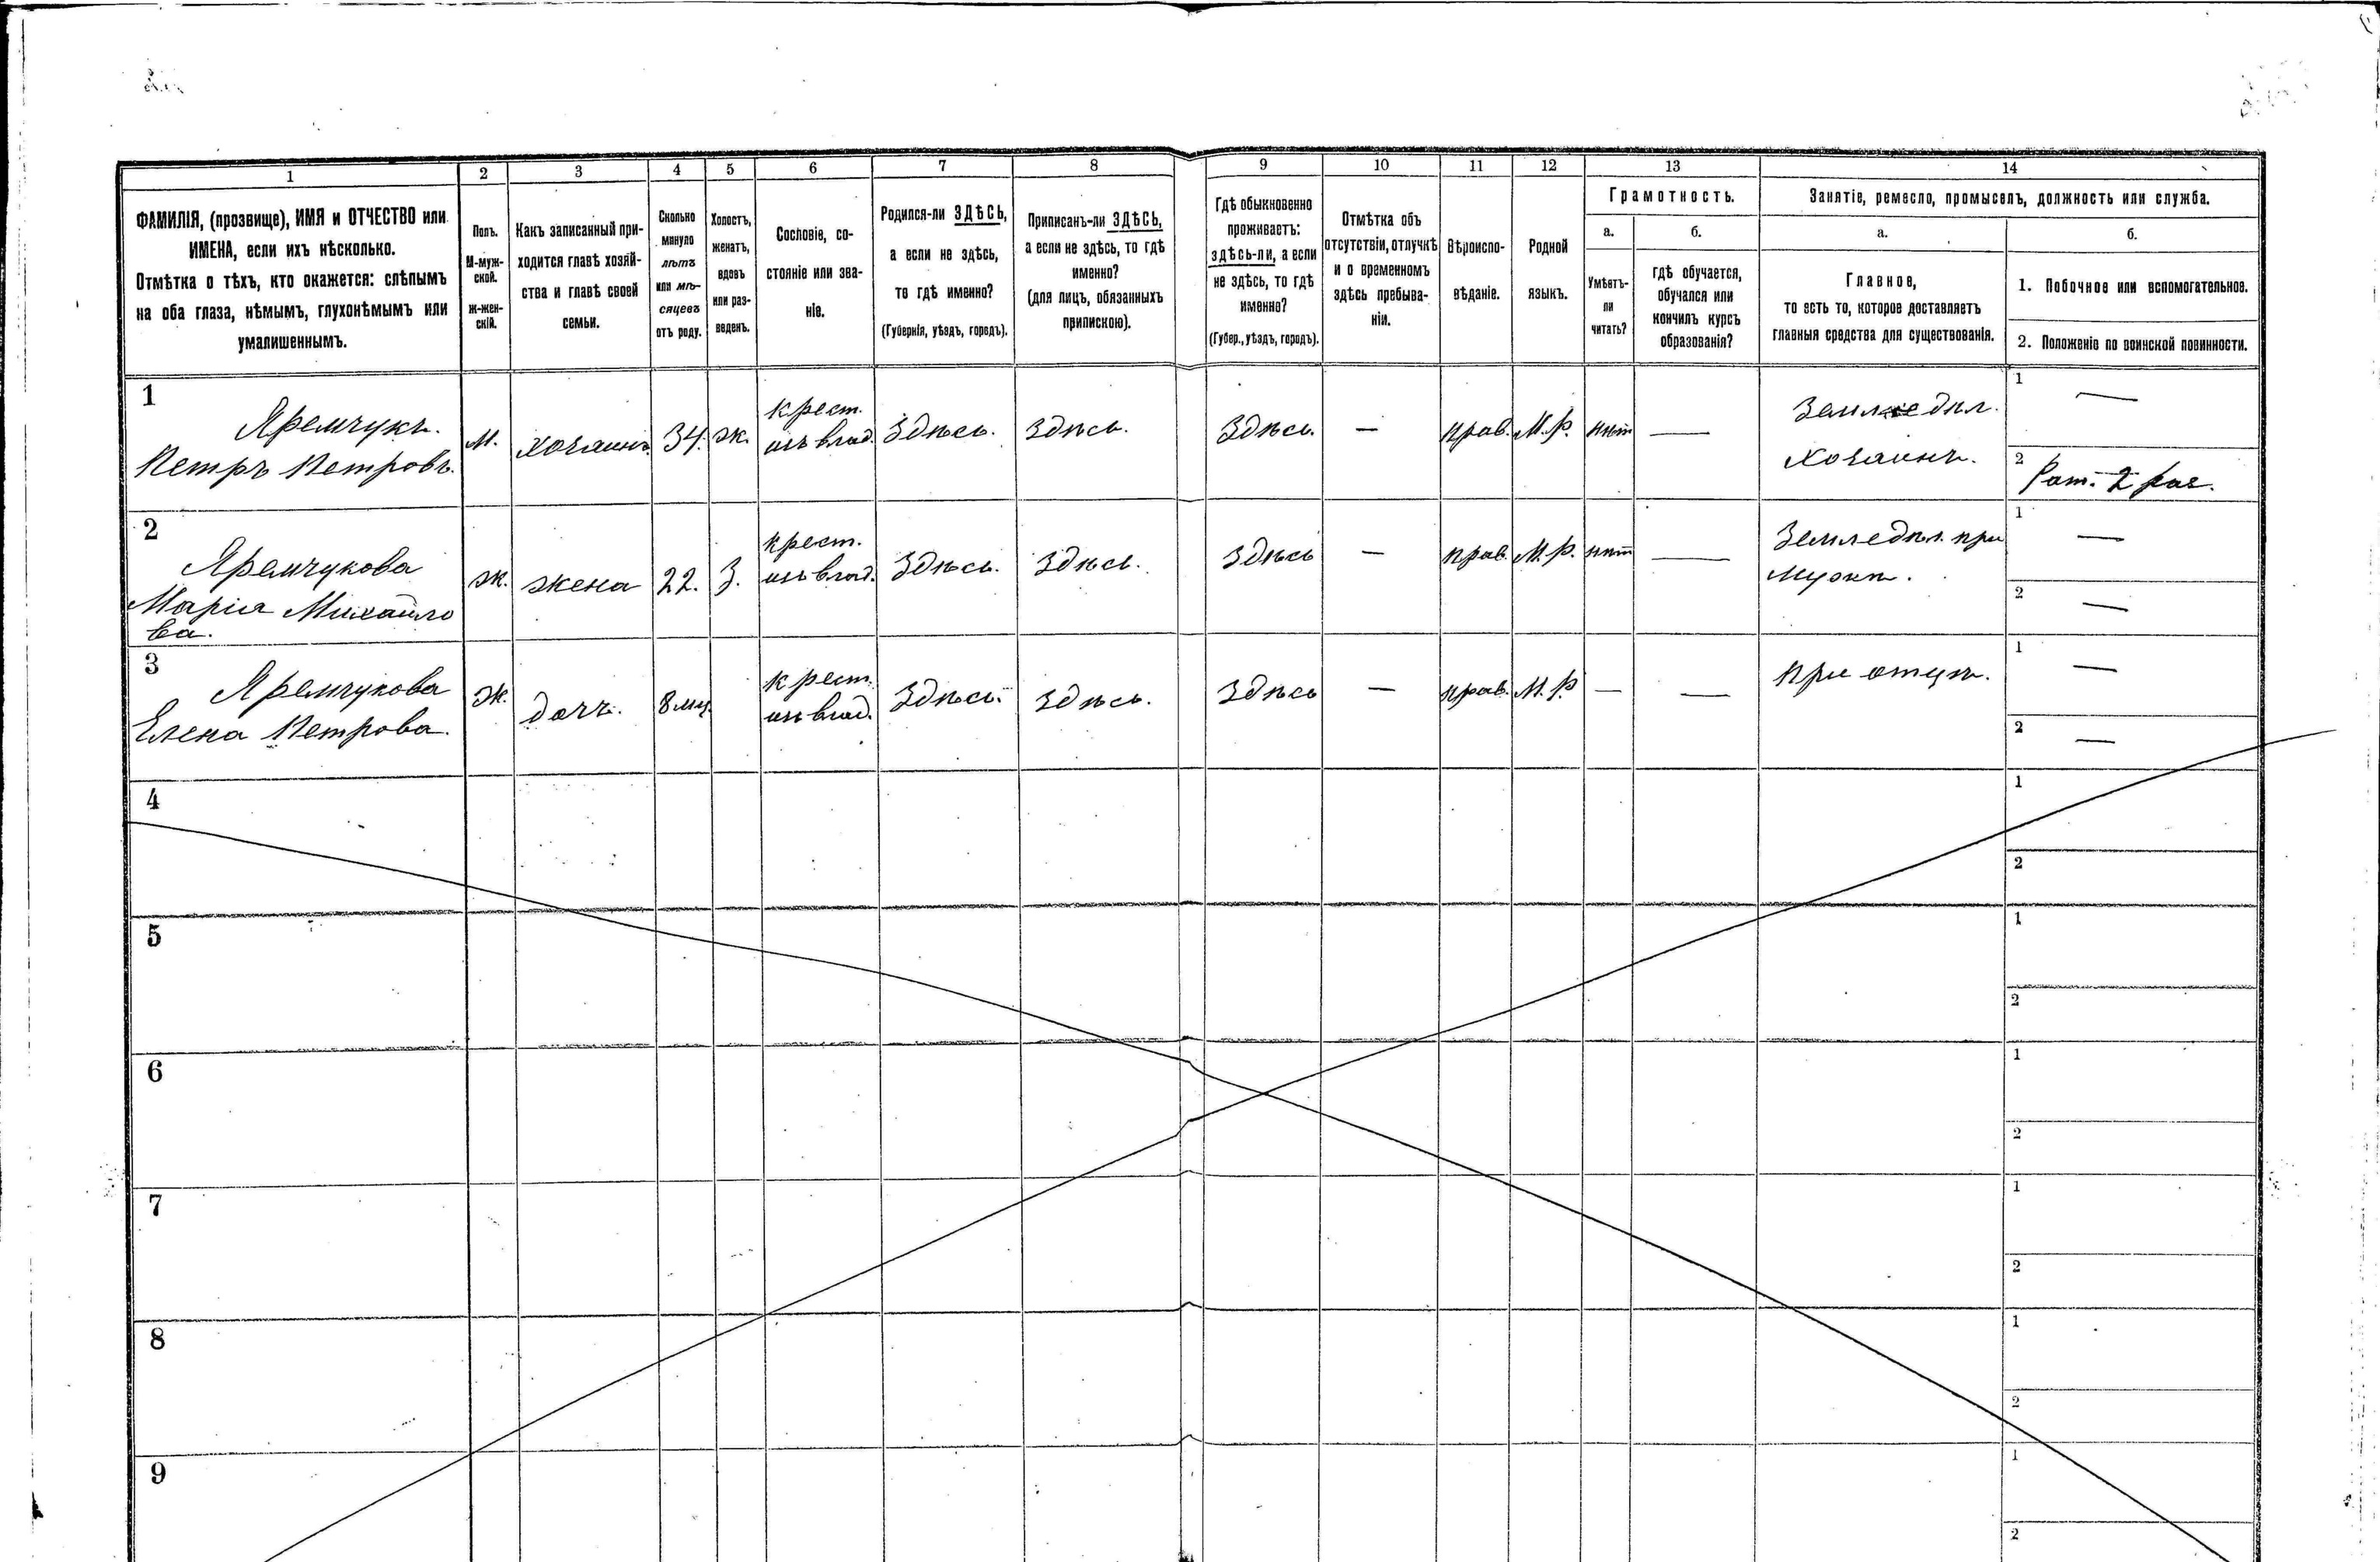 1 2 3 4 5 6 7 8 9 10 11 12 13 14
ФАМИЛІЯ, (прозвище), ИМЯ и ОТЧЕСТВО или
ИМЕНА, если ихъ нѣсколько.
Отмѣтка о тѣхъ, кто окажется: слѣпымъ
на оба глаза, нѣмымъ, глухонѣмымъ или
умалишеннымъ.
Полъ.
М-муж-
ской.
ж-жен-
скій.
Какъ записанный при-
ходится главѣ хозяй-
ства и главѣ своей
семьи.
Сколько
минуло
лѣтъ
или мѣ-
сяцевъ
отъ роду.
Холостъ,
женатъ,
вдовъ
или раз-
веденъ.
Сословіе, со-
стояніе или зва-
ніе.
Родился-ли ЗДѢСЬ,
а если не здѣсь,
то гдѣ именно?
(Губернія, уѣздъ, городъ).
Приписанъ-ли ЗДѢСЬ,
а если не здѣсь, то гдѣ
именно?
(для лицъ, обязанныхъ
припискою).
Гдѣ обыкновенно
проживаетъ:
здѣсь-ли, а если
не здѣсь, то гдѣ
именно?
(Губер., уѣздъ, городъ).
Отмѣтка объ
отсутствіи, отлучкѣ
и о временномъ
здѣсь пребыва-
ніи.
Вѣроиспо-
вѣданіе.
Родной
языкъ.
Грамотность.
а.
Умѣетъ-
ли
читать?
б.
гдѣ обучается,
обучался или
кончилъ курсъ
образованія?
Занятіе, ремесло, промыселъ, должность или служба.
а.
Главное,
то есть то, которое доставляетъ
главныя средства для существованія.
б.
1. Побочное или вспомогательное.
2. Положеніе по воинской повинности.
1
Яремчукъ.
Петръ Петровъ.
М.
хозаинъ
34.
ж.
крест.
изъ влад.
Здѣсь.
Здѣсь.
Здѣсь.
—
прав.
М.р.
нѣт
—
Земледѣл.
Хозаинъ.
1 —
2 Рат. 2 раз.
2
Яремчукова
Марія Михайло
ва.
ж.
жена
22.
З.
крест.
изъ влад.
Здѣсь.
Здѣсь.
Здѣсь
—
прав.
М.р.
нѣт
—
Земледѣл. при
мужѣ.
1 —
2 —
3
Яремчукова
Елена Петрова.
Ж.
дочъ.
8 мц.
крест.
изъ влад.
Здѣсь.
Здѣсь.
Здѣсь
—
прав.
М.р
—
—
при отцѣ.
1 —
2 —
4
1
2
5
1
2
6
1
2
7
1
2
8
1
2
9
1
2